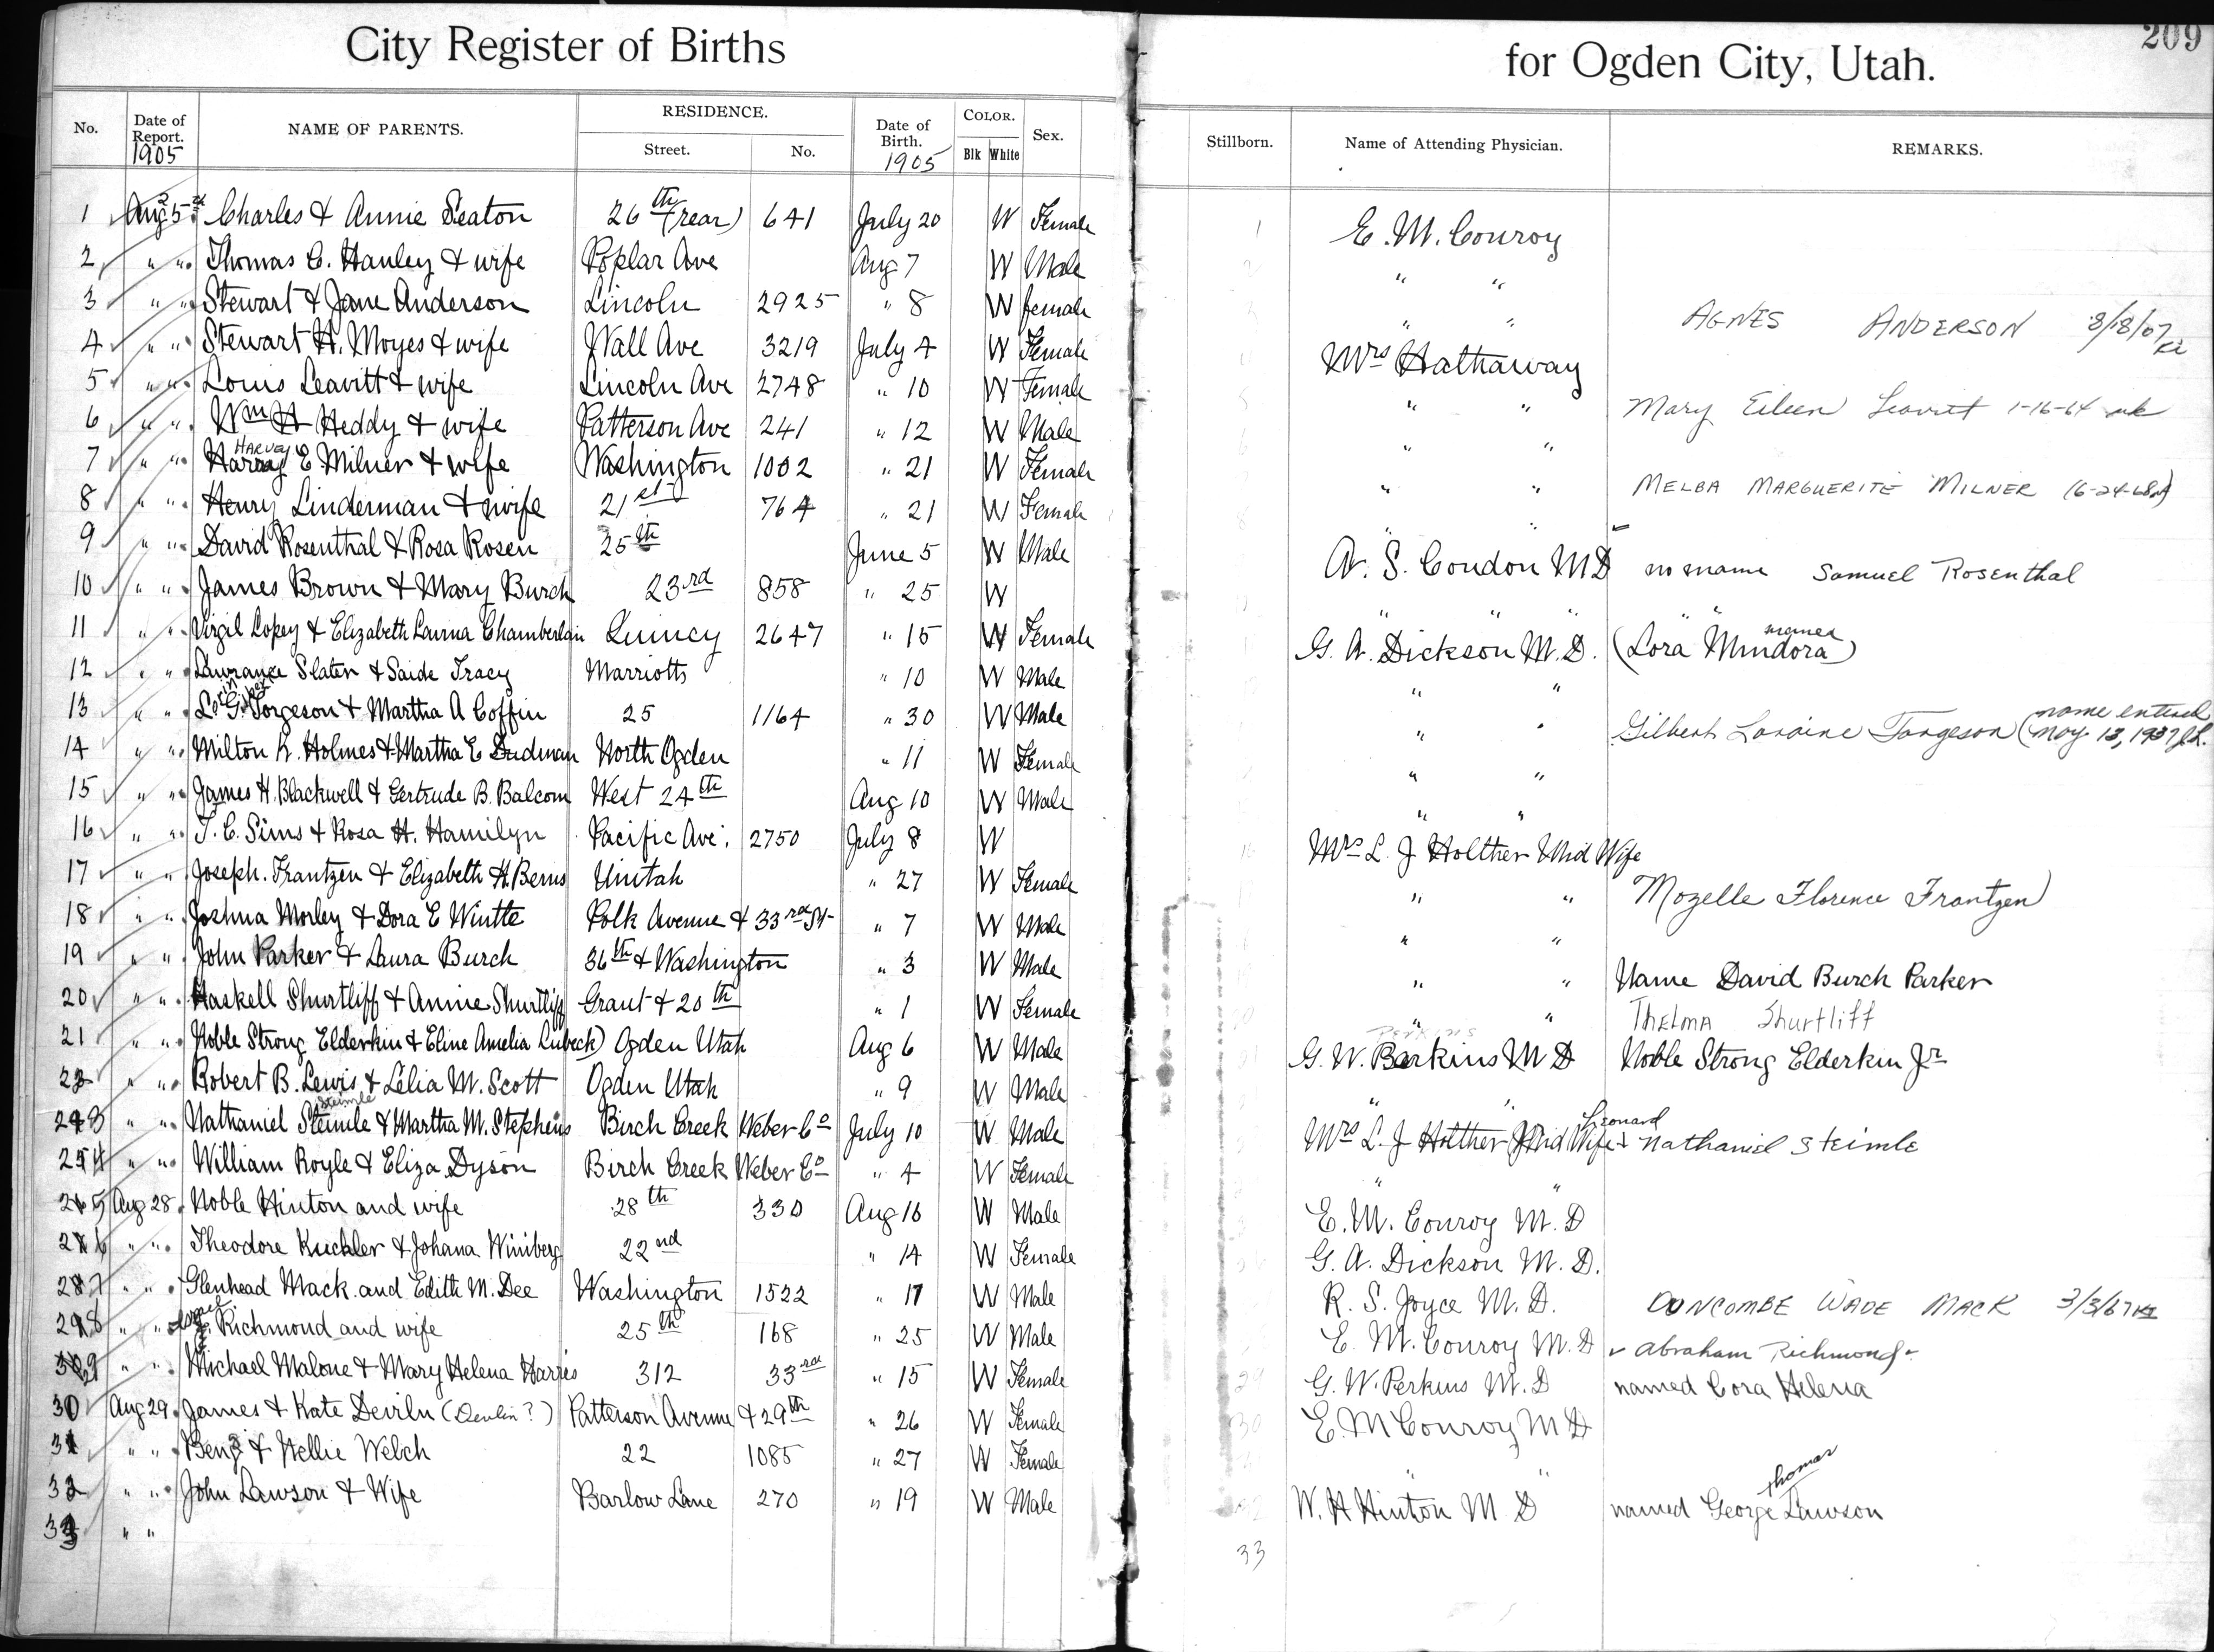 City Register of Births for Ogden City, Utah. 209
No. Date of Report. 1905 NAME OF PARENTS. RESIDENCE. Street. No. Date of Birth. 1905 COLOR. Blk White Sex. Stillborn. Name of Attending Physician. REMARKS.
1 Aug 5 Charles & Annie Seaton 26th (rear) 641 July 20 W Female 1 E. M. Conroy
2 " " Thomas C. Hanley & wife Poplar Ave Aug 7 W Male " "
3 " " Stewart & Jane Anderson Lincoln 2925 " 8 W female " " AGNES ANDERSON 8/18/07
4 " " Stewart H. Moyes & wife Wall Ave 3219 July 4 W Female Mrs Hathaway
5 " " Louis Leavitt & wife Lincoln Ave 2748 " 10 W Female " " Mary Eileen Leavitt 1-16-64
6 " " Wm H Heddy & wife Patterson Ave 241 " 12 W Male " "
7 " " Harray HARVEY E. Milner & wife Washington 1002 " 21 W Female " " MELBA MARGUERITE MILNER (6-24-68
8 " " Henry Linderman & wife 21st 764 " 21 W Female " "
9 " " David Rosenthal & Rosa Rosen 25th June 5 W Male A. S. Condon M D no name Samuel Rosenthal
10 " " James Brown & Mary Burch 23rd 858 " 25 W " " " "
11 " " Virgil Lopey & Elizabeth Lavina Chamberlain Quincy 2647 " 15 W Female G. A. Dickson M. D. (Lora Mindora)
12 " " Lawrance Slater & Saide Tracy Marriotts " 10 W Male " "
13 " " Torgeson & Martha A Coffin 25 1164 " 30 W Male " " Gilbert Loraine Torgeson (name entered May 13, 1937
14 " " Milton R. Holmes & Martha E Dudman North Ogden " 11 W Female " "
15 " " James H. Blackwell & Gertrude B. Balcom West 24th Aug 10 W Male " "
16 " " T. C. Sims & Rosa H. Hamilyn Pacific Ave. 2750 July 8 W Mrs L. J Holther Mid Wife
17 " " Joseph. Frantzen & Elizabeth H. Berns Uintah " 27 W Female " " Mozelle Florence Frantzen
18 " " Joshua Morley & Dora E Wintte Polk Avenue & 33rd St " 7 W Male " "
19 " " John Parker & Laura Burch 36th & Washington " 3 W Male " " Name David Burch Parker
20 " " Haskell Shurtliff & Annie Shurtliff Grant & 20th " 1 W Female " " THELMA Shurtliff
21 " " Noble Strong Elderkin & Eline Amelia Lubeck) Ogden Utah Aug 6 W Male G. W. Berkins M D Perkins Noble Strong Elderkin Jr
22 " " Robert B. Lewis & Lelia M. Scott Ogden Utah " 9 W Male " "
23 " " Nathaniel Steimle Steimle & Martha M. Stephens Birch Creek Weber Co July 10 W Male Mrs L. J Holther Mid Wife Leonard Nathaniel Steimle
24 " " William Royle & Eliza Dyson Birch Creek Weber Co " 4 W Female " "
25 Aug 28 Noble Hinton and wife 28th 330 Aug 16 W Male E. M. Conroy M. D
26 " " Theodore Kuchler & Johana Winiberg 22nd " 14 W Female G. A. Dickson M. D.
27 " " Glenhead Mack and Edith M. Dee Washington 1522 " 17 W Male R. S. Joyce M. D. DUNCOMBE WADE MACK 3/3/67
28 " " Richmond and wife 25th 168 " 25 W Male E. M. Conroy M. D Abraham Richmond
29 " " Michael Malone & Mary Helena Harris 312 33rd " 15 W Female 29 G. W. Perkins M. D named Cora Helena
30 Aug 29 James & Kate Deviln (Devlin?) Patterson Avenue & 29th " 26 W Female 30 E. M Conroy M D
31 " " Benj & Nellie Welch 22 1085 " 27 W Female " "
32 " " John Lawson & Wife Barlow Lane 270 " 19 W Male 32 W. H Hinton M D named George Thomas Lawson
33 " " 33